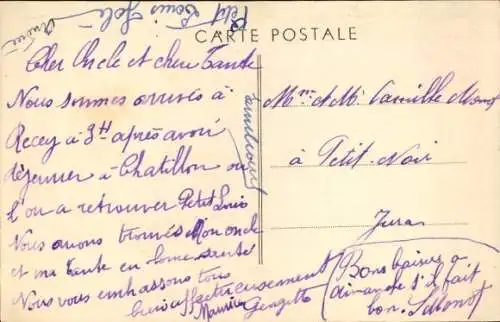 Petit Louis Joli
CARTE POSTALE
Cher Oncle et chere Tante
Nous sommes arrivés à
Recey à 3H après avoir
déjeuner à Chatillon ou
l'on a retrouver Petit Louis
Nous avons trouvés Mon oncle
et ma tante en bonne santé
Nous vous embrassons tous
bien affectueusement
Maurice Georgette
Mme et Mr Camille Monot
à Petit-Noir
Jura
Bons baisers a
dimanche s'il fait
bon.